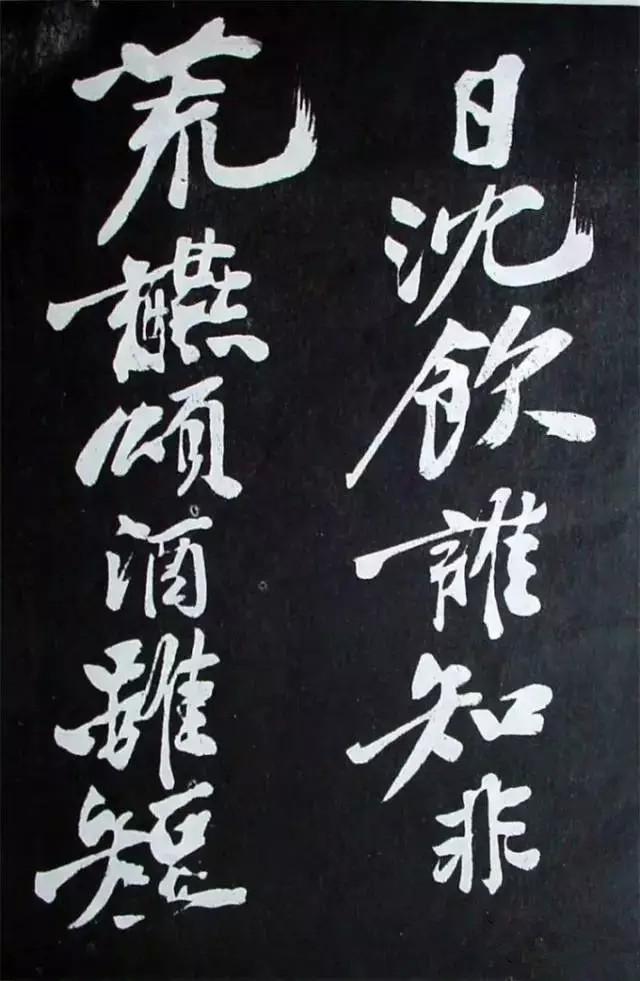 日沈飲誰知非
荒讌頌酒雖短